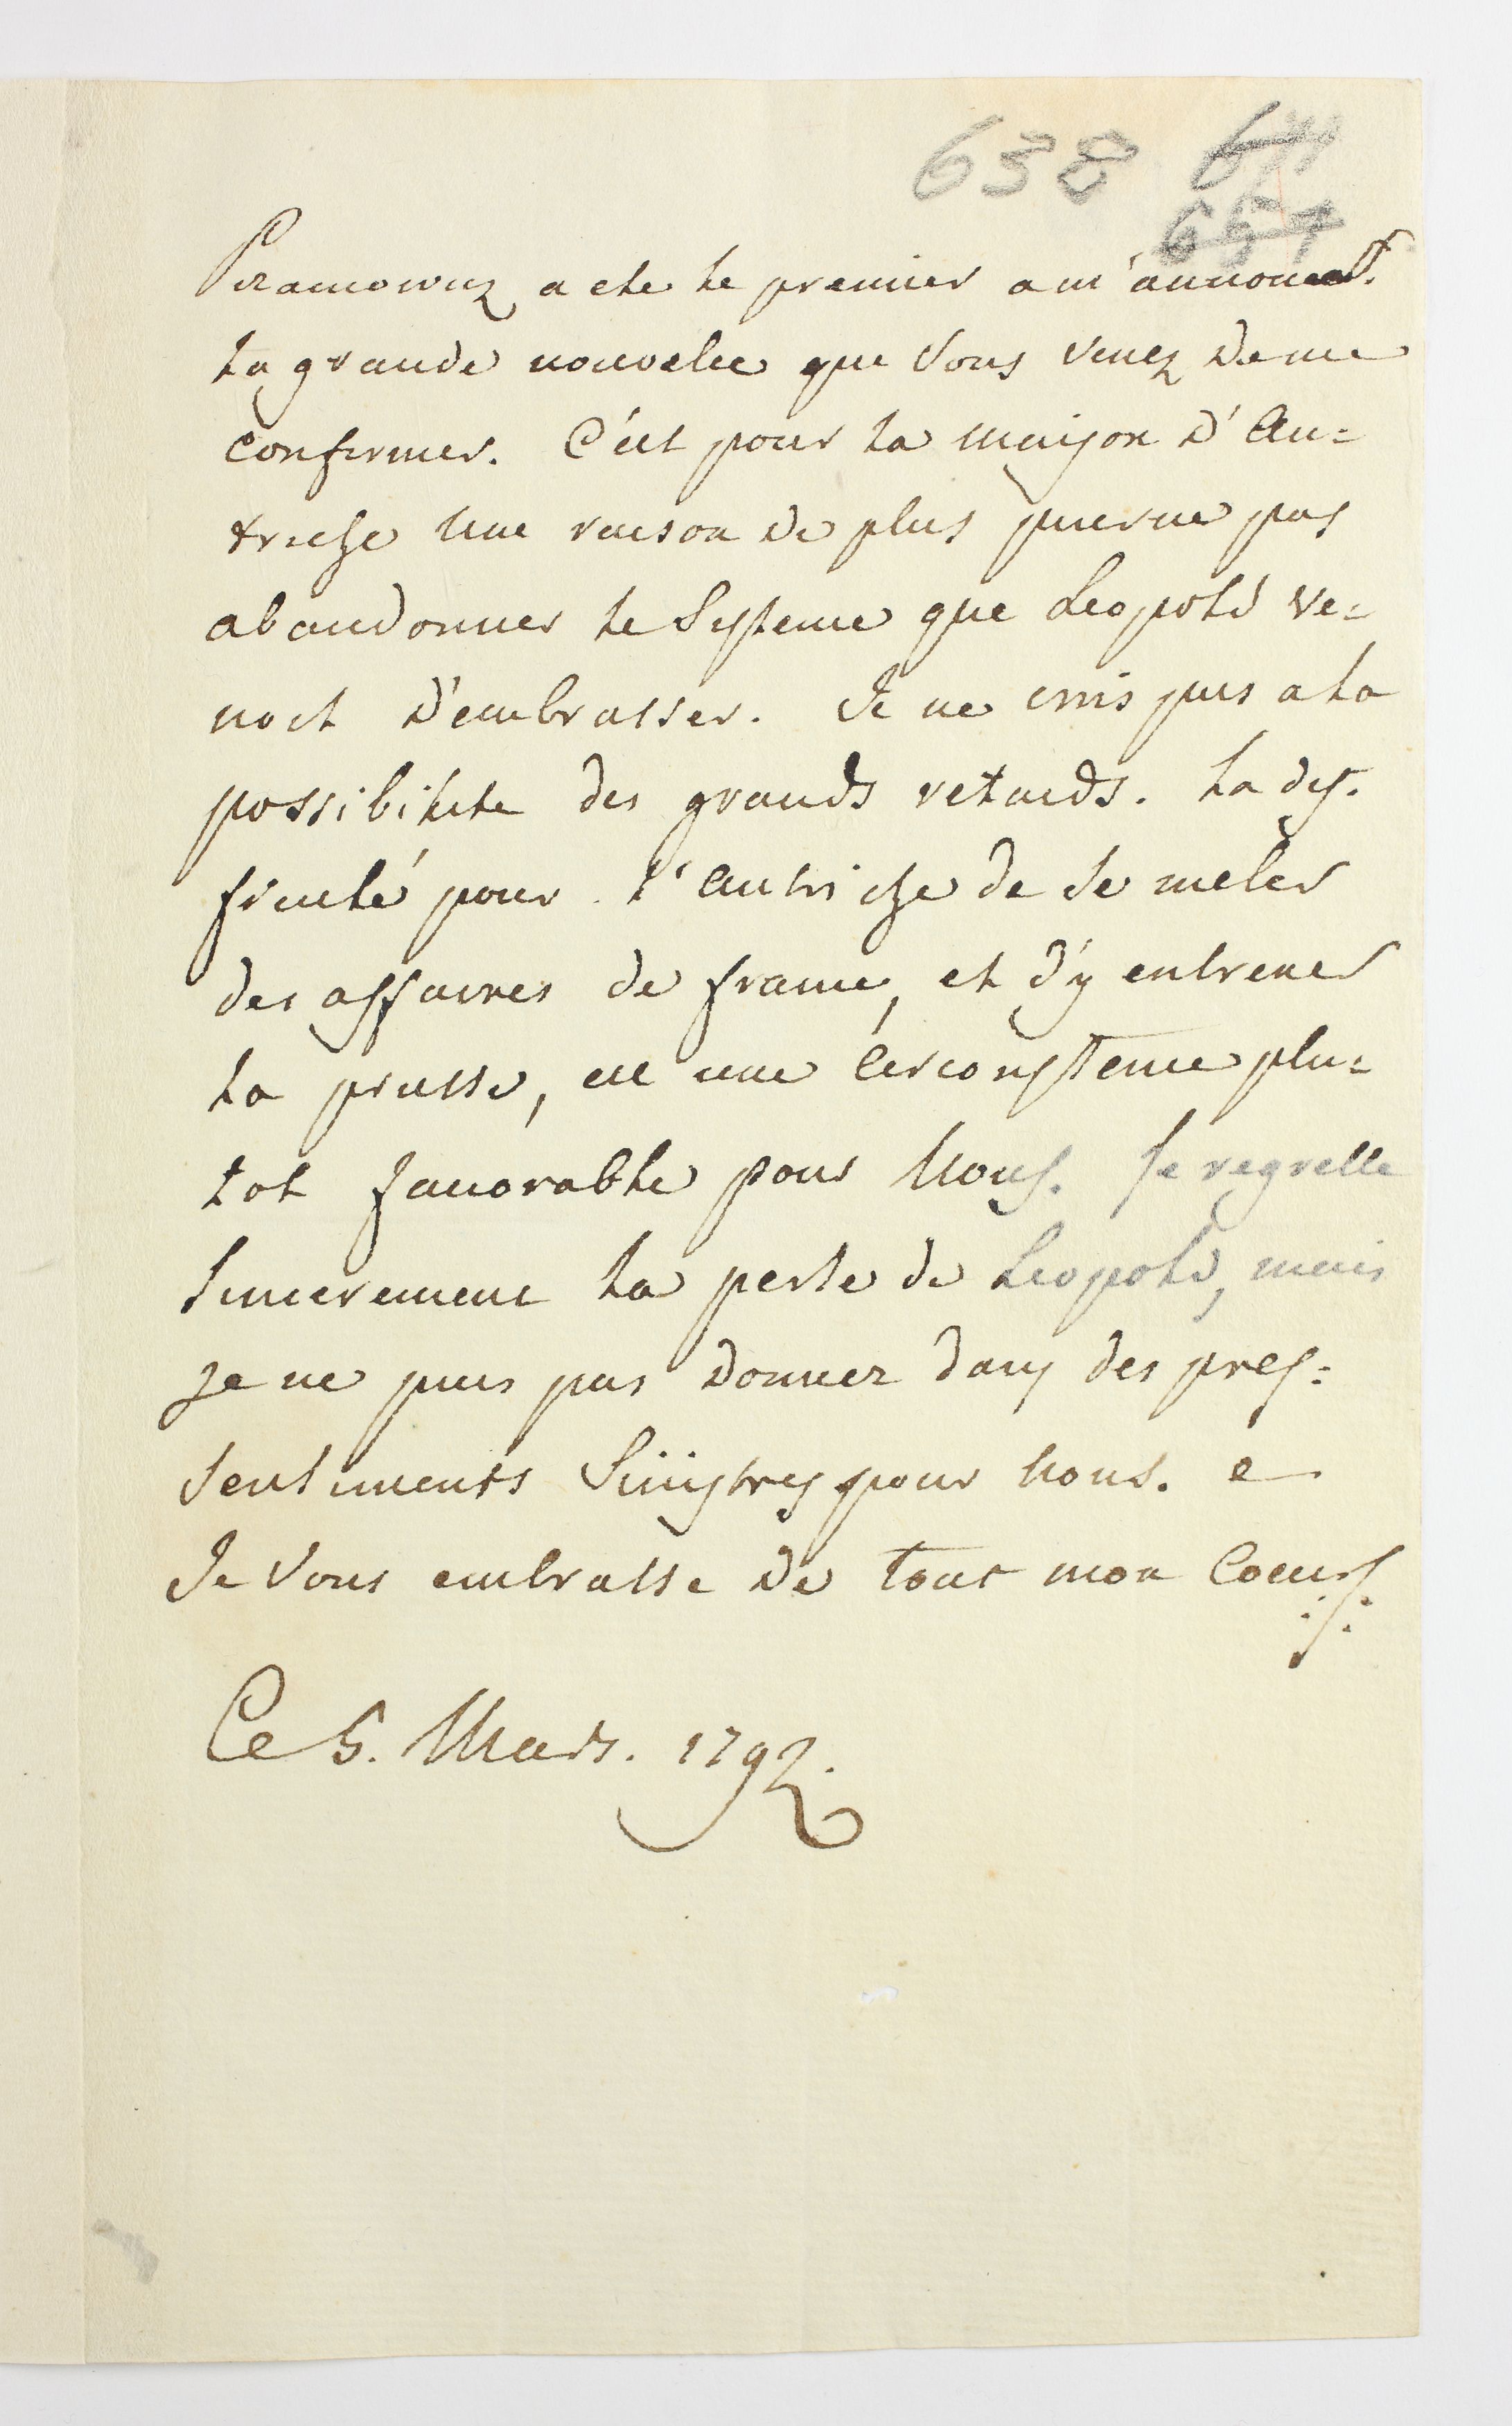 638
657
Piramowicz a ete le premier a m'annoncer
la grande nouvelle que Vous venez de me
confirmer. C'est pour la maison d'Au=
triche une raison de plus pour ne pas
abandonner le Systeme que Leopold ve=
noit d'embrasser. Je ne crois pas a la
possibilite des grands retards. La dif.
ficulté pour l'Autriche de se meler
des affaires de france, et d'y entrener
la prusse, est une Circonstence plu=
tot favorable pour Nous. Je regrette
Sincerement la perte de Leopold, mais
je ne puis pas donner dans des pres=
sentiments Sinistres pour nous.
Je Vous embrasse de tout mon Coeur
Ce 5. Mars. 1792.